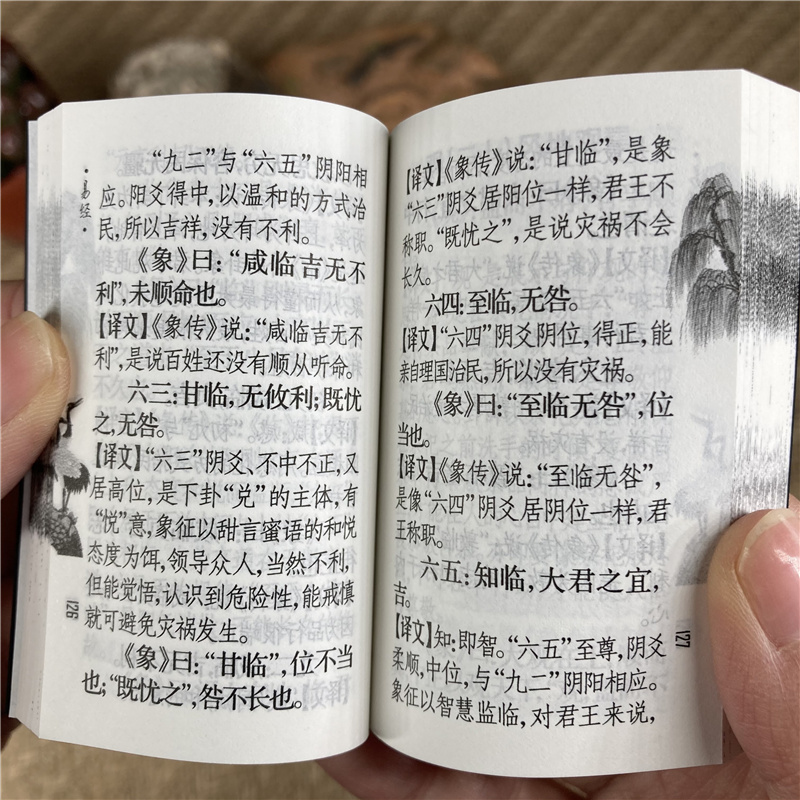 ·易经·
“九二”与“六五”阴阳相
应。阳爻得中,以温和的方式治
民,所以吉祥,没有不利。
《象》曰:“咸临吉无不
利”,未顺命也。
【译文】《象传》说:“咸临吉无不
利”,是说百姓还没有顺从听命。
六三:甘临,无攸利;既忧
之,无咎。
【译文】“六三”阴爻、不中不正,又
居高位,是下卦“兑”的主体,有
“悦”意,象征以甜言蜜语的和悦
态度为饵,领导众人,当然不利,
但能觉悟,认识到危险性,能戒慎
就可避免灾祸发生。
《象》曰:“甘临”,位不当
也;“既忧之”,咎不长也。
126
【译文】《象传》说:“甘临”,是象
“六三”阴爻居阳位一样,君王不
称职。“既忧之”,是说灾祸不会
长久。
六四:至临,无咎。
【译文】“六四”阴爻阴位,得正,能
亲自理国治民,所以没有灾祸。
《象》曰:“至临无咎”,位
当也。
【译文】《象传》说:“至临无咎”,
是像“六四”阴爻居阴位一样,君
王称职。
六五:知临,大君之宜,
吉。
【译文】知:即智。“六五”至尊,阴爻
柔顺,中位,与“九二”阴阳相应。
象征以智慧监临,对君王来说,
127